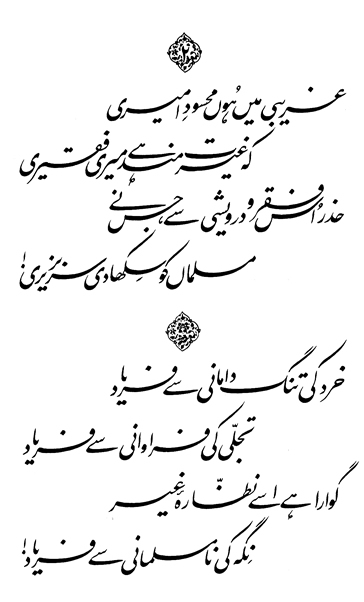 غریبی میں ہوں محسودِ امیری
کہ غیرت مند ہے میری فقیری
حذر اُس فقر و درویشی سے، جس نے
مسلماں کو سِکھا دی سر بزیری!
خرد کی تنگ دامانی سے فریاد
تجلّی کی فراوانی سے فریاد
گوارا ہے اسے نظّارۂ غیر
نِگہ کی نا مسلمانی سے فریاد!